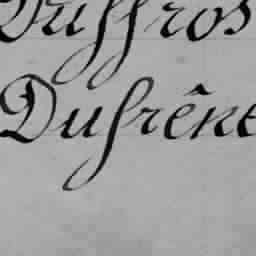 Duffros
Dufrêne